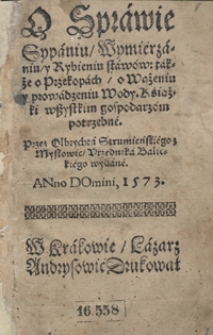 O Spráwie
Sypániu / Wymierzá-
niu / y Rybieniu stáwow: ták-
że o Przekopách / o Ważeniu
y prowádzeniu Wody. Książ-
ki wszystkim gospodarzom
potrzebné.
Przez Olbrychtá Strumieńskiego z
Mysłowic / Vrzędniká Balic-
kiego wydáné.
ANno DOmini, 1573.
W Krákowie / Lázarz
Andrysowic Drukował
16.558